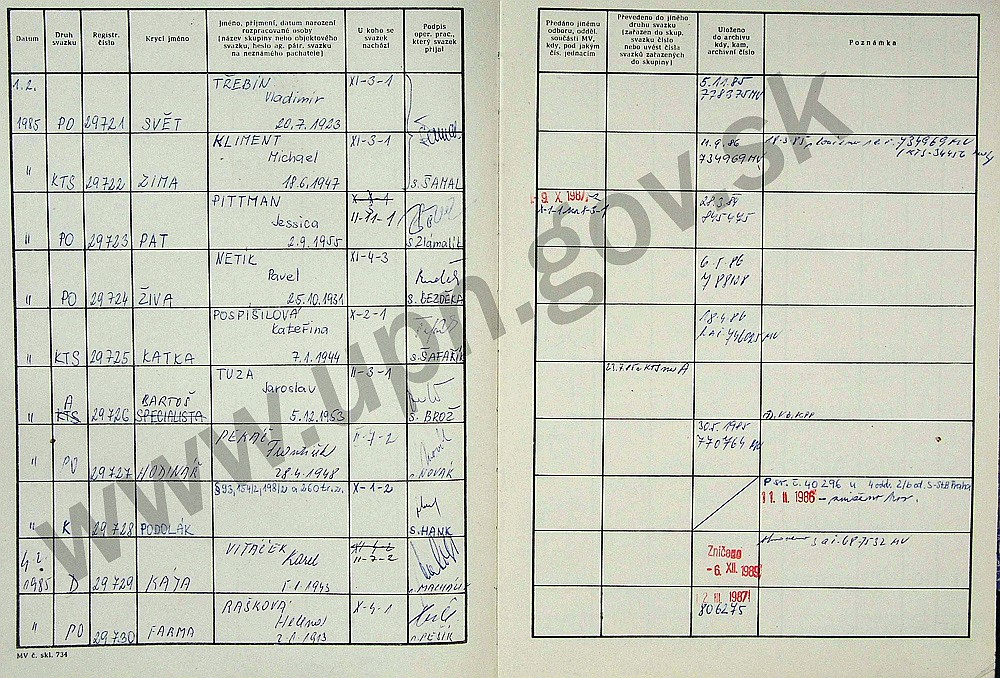 Datum
Druh svazku
Registr. číslo
Krycí jméno
Jméno, příjmení, datum narození
rozpracované osoby
(název skupiny nebo objektového
svazku, heslo ag. pátr. svazku
na neznámého pachatele)
U koho se
svazek
nachází
Podpis
oper. prac.,
který svazek
přijal
Předáno jinému
odboru, odděl.
součásti MV,
kdy, pod jakým
čís. jednacím
Převedeno do jiného
druhu svazku
(zařazen do skup.
svazku číslo
nebo uvést čísla
svazků zařazených
do skupiny)
Uloženo
do archivu
kdy, kam,
archivní číslo
Poznámka
1.2. TŘEBÍN XI-3-1 5.11.85
Vladimír 778375 MV
1985 PO 29721 SVĚT 20.7.1923
KLIMENT XI-3-1 11.9.86 18.3.85
Michael 734969 MV
" KTS 29722 ZIMA 18.6.1947 S. ŠAMAL
PITTMAN - 9. X. 1987
Jessica II-11-1 845445
" PO 29723 PAT 2.9.1955 S. Zlámalík
NETÍK XI-4-3
Pavel
" PO 29724 ŽIVA 25.10.1931 S. BEZDĚKA
POSPÍŠILOVÁ X-2-1 18.4.86
Kateřina
" KTS 29725 KATKA 7.1.1944 S. ŠAFAŘÍK
TUZA II-3-1
A BARTOŠ Jaroslav
" KTS 29726 SPECIALISTA 5.12.1953 S. BROŽ
PEKAČ II-7-2 30.5.1985
František 770764 MV
" PO 29727 HODINÁŘ 28.4.1948 NOVÁK
§ 93, 154/2, 198/2 a 260 tr. z. X-1-2 P sv. č. 40296 u 4 odd. 2/b od. S-StB Praha
11. II. 1986
" K 29728 PODOLÁK S. HANK
4.2. VITÁČEK Karel II-7-2 Zničeno
- 6. XII. 1989
1985 D 29729 KÁJA 1.1.1943
RAŠKOVÁ X-4-1 2 III. 1987
Helena 806275
" PO 29730 FARMA 2.1.1913 PEŠÍK
MV č. skl. 734
www.upn.gov.sk